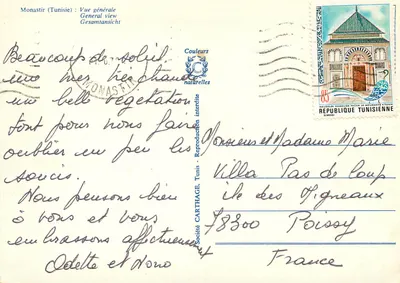 Monastir (Tunisie) : Vue générale
General view
Gesamtansicht
Beaucoup de soleil
une mer très chaude
un bell végétation
font pour nous faire
oublier un peu les
soucis.
Nous pensons bien
à vous et vous
embrassons affectueusement
Odette et Nono
Couleurs
naturelles
Société CARTHAGE, Tunis - Reproduction interdite
MONASTIR
85
REPUBLIQUE TUNISIENNE
Monsieur et Madame Marie
Villa Pas de loup
île des Migneaux
78300 Poissy
France